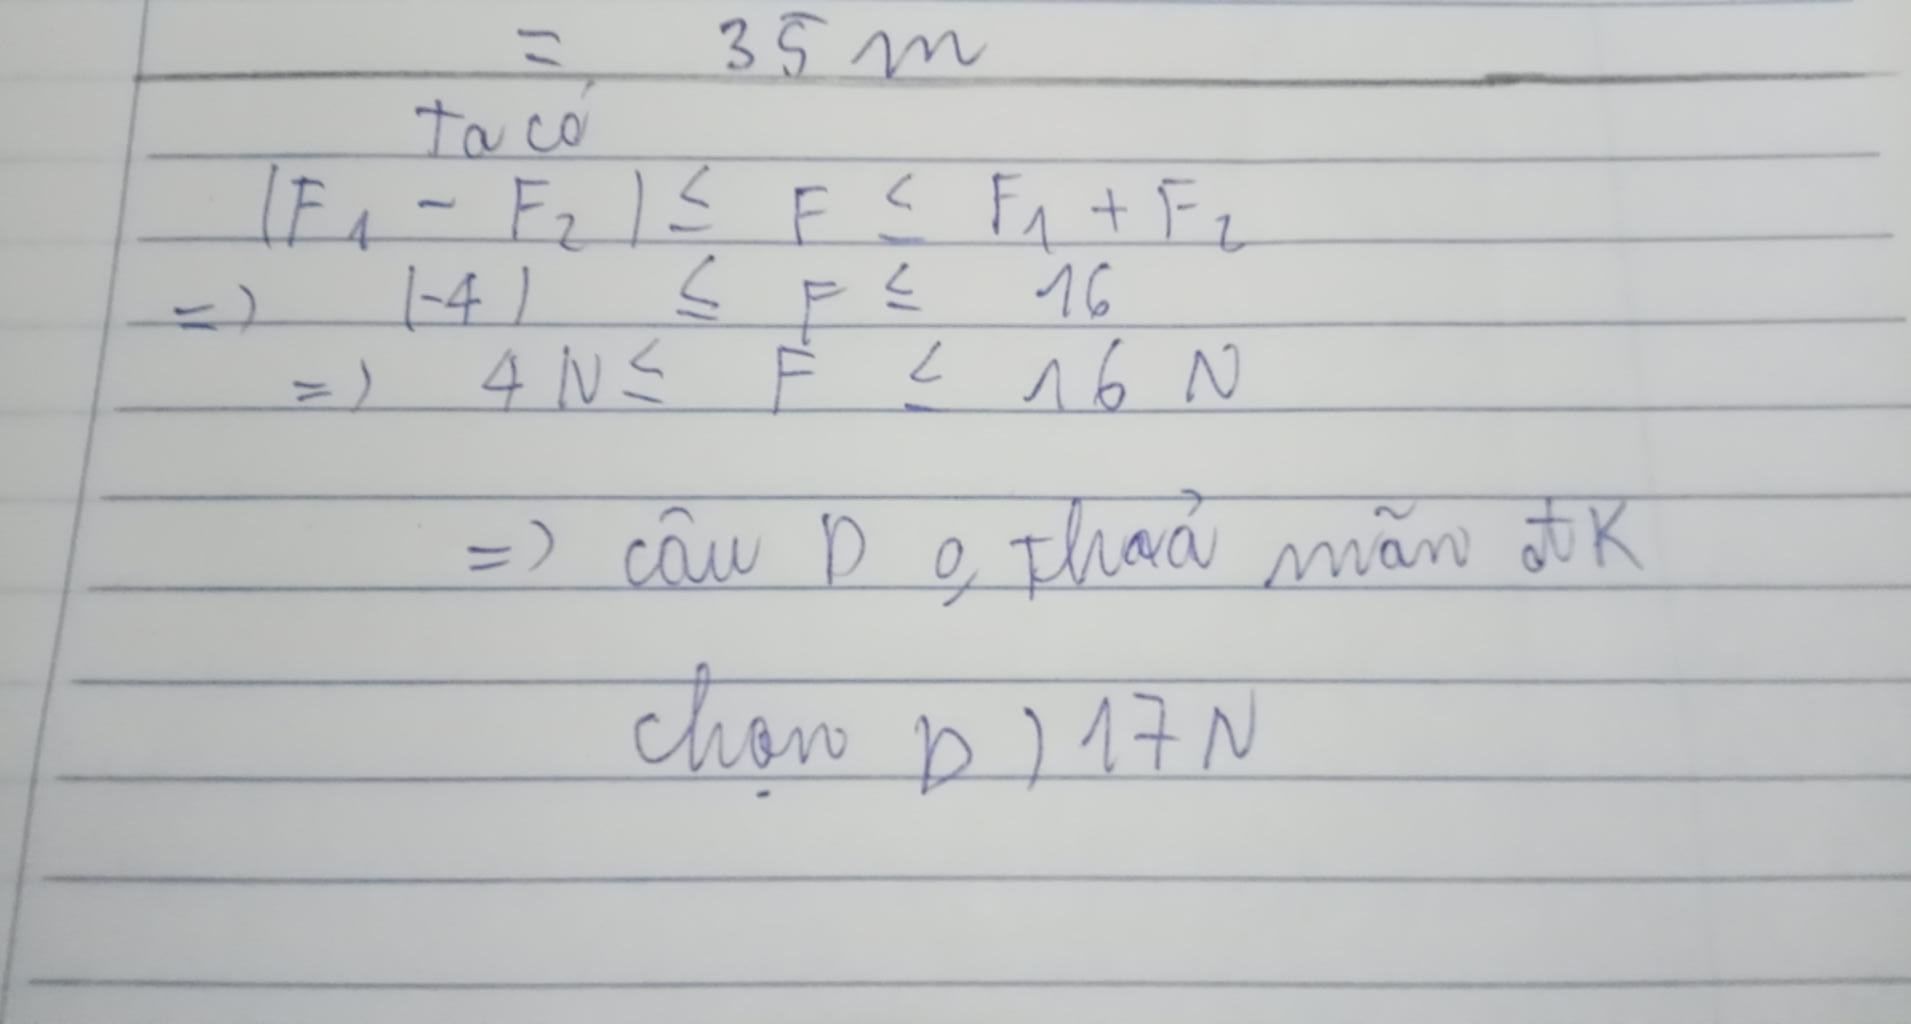 = 35 m
Ta có
|F₁ - F₂| ≤ F ≤ F₁ + F₂
=) |-4| ≤ F ≤ 16
=) 4 N ≤ F ≤ 16 N
=) câu D o, thoả mãn đK
chọn D) 17 N